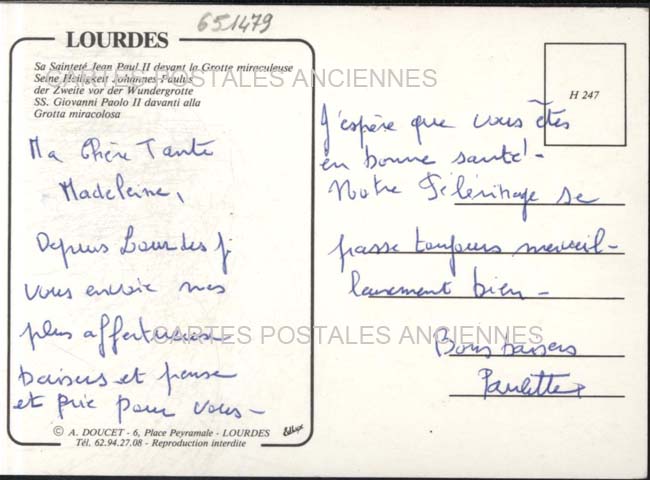 651479
LOURDES
Sa Sainteté Jean Paul II devant la Grotte miraculeuse
Seine Heiligkeit Johannes-Paulus
der Zweite vor der Wundergrotte
SS. Giovanni Paolo II davanti alla
Grotta miracolosa
CARTES POSTALES ANCIENNES
Ma Chère Tante
Madeleine,
Depuis Lourdes je
vous envoie mes
plus affectueux
CARTES POSTALES ANCIENNES
baisers et pense
et prie pour vous -
© A. DOUCET - 6, Place Peyramale - LOURDES
Tél. 62.94.27.08 - Reproduction interdite
H 247
J'espère que vous êtes
en bonne santé! -
Notre Pélérinage se
passe toujours merveil-
leusement bien -
Bons baisers
Paulette